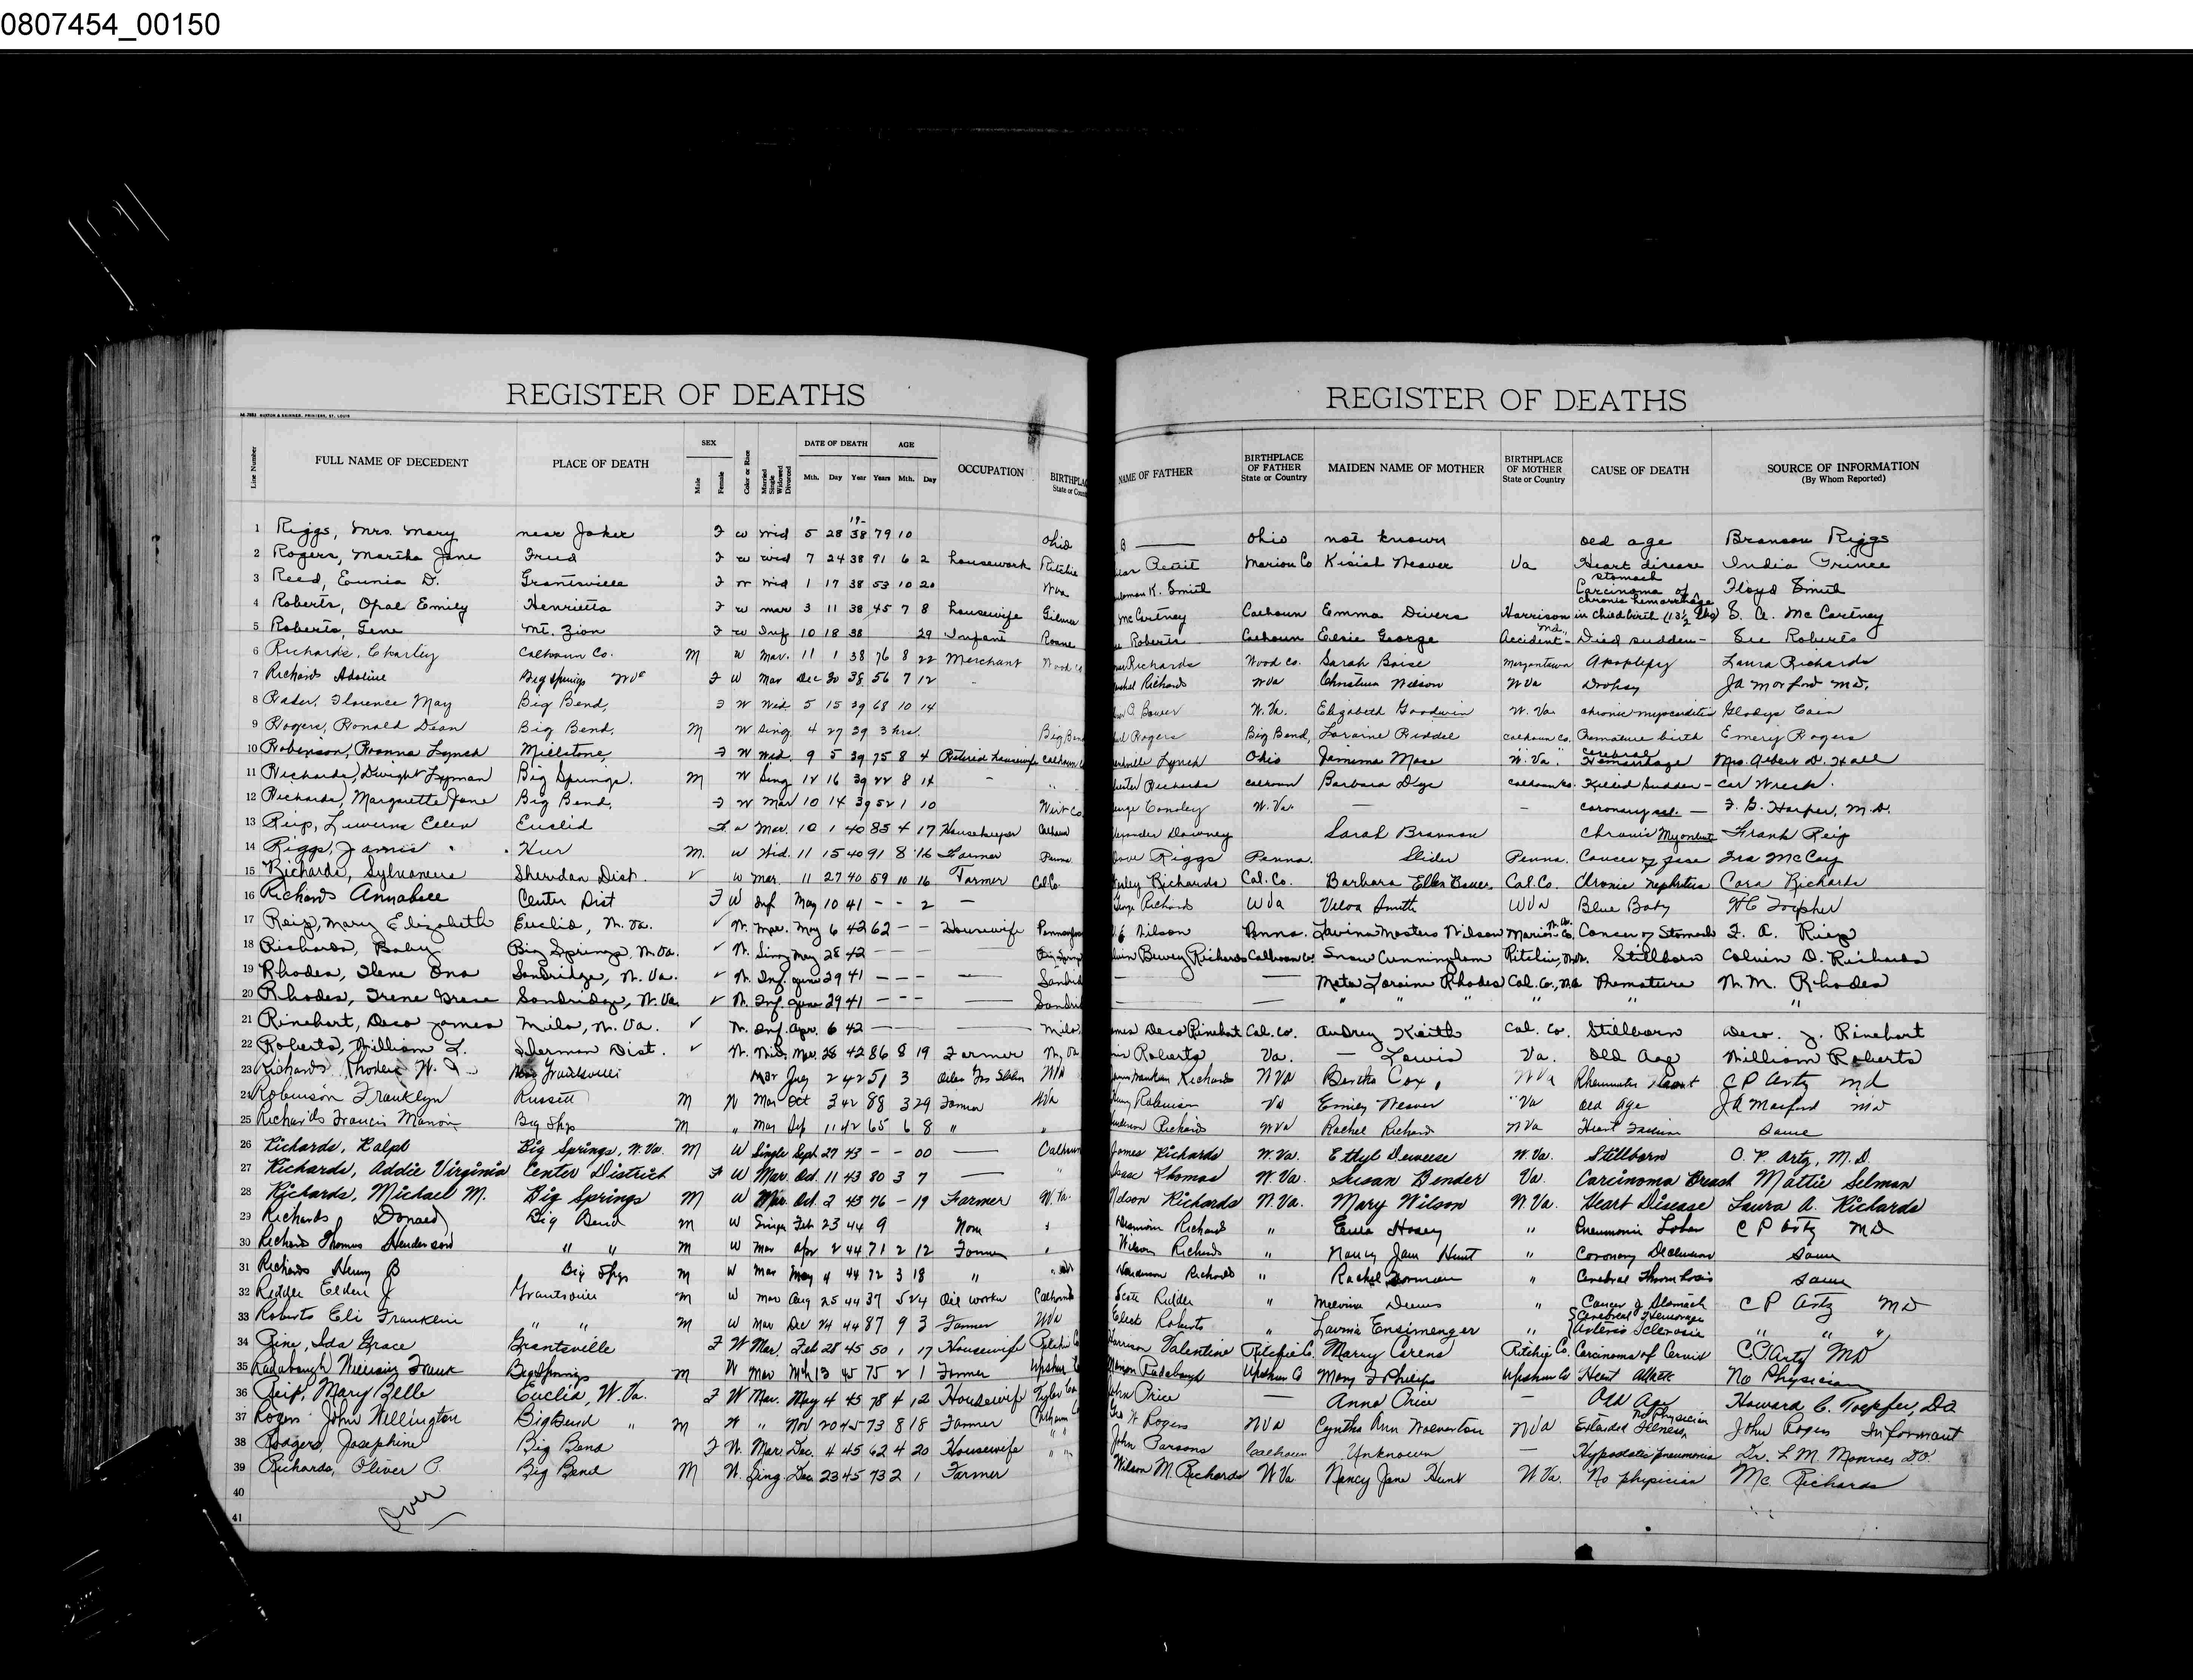 0807454_00150
REGISTER OF DEATHS
REGISTER OF DEATHS
Line Number FULL NAME OF DECEDENT PLACE OF DEATH SEX Male Female Color or Race Married Single Widowed Divorced DATE OF DEATH Mth. Day Year AGE Years Mth. Day OCCUPATION
NAME OF FATHER BIRTHPLACE OF FATHER State or Country MAIDEN NAME OF MOTHER BIRTHPLACE OF MOTHER State or Country CAUSE OF DEATH SOURCE OF INFORMATION (By Whom Reported)
19-
1 Riggs, Mrs. Mary near Joker F w Wid 5 28 38 79 10 Ohio Ohio not known old age Branson Riggs
2 Rogers, Martha Jane Freed F w wid 7 24 38 91 6 2 housework Ritchie Marion Co Kisiah Weaver Va Heart disease India
3 Reed, Eunia D. Grantsville F w wid 1 17 38 53 10 20 Wva Smith stomach Carcinoma of Floyd Smith
4 Roberts, Opal Emily Henrietta F w mar 3 11 38 45 7 8 housewife Gilmer McCartney Calhoun Emma Divers Harrison chronic hemorrhage in childbirth (13½ lbs) S. A. McCartney
5 Roberts, Gene Mt. Zion F w Inf 10 18 38 29 Infant Roane Roberts Calhoun Elsie George Accident - Died sudden - Roberts
6 Richards, Charley Calhoun Co. M W Mar. 11 1 38 76 8 22 Merchant Wood Co Richards Wood Co. Sarah Boise Morgantown Apoplexy Laura Richards
7 Richards Adaline Big Springs F W Mar Dec 30 38 56 7 12 Richards WVa Christina Nelson WVa Dropsy JA Morford MD.
8 Rader, Florence May Big Bend, F W Wid. 5 15 39 68 10 14 W. Va. Elizabeth Goodwin W. Va chronic myocarditis Gladys Cain
9 Rogers, Ronald Dean Big Bend, M W Sing. 4 27 39 3 hrs. Big Bend Rogers Big Bend, Loraine Riddel Calhoun Co. Premature birth Emery Rogers
10 Robinson, Roanna Lynch Millstone, F W Wid. 9 5 39 75 8 4 Retired housewife Calhoun Lynch Ohio Jemima Mace W. Va. Cerebral Hemorrhage Mrs. Albert D. Hall
11 Richards, Dwight Lyman Big Springs. M W Sing 12 16 39 22 8 14 - Richards Calhoun Barbara Dye Calhoun Co. Killed Sudden - Car Wreck.
12 Richards, Margarette Jane Big Bend, F W Mar 10 14 39 52 1 10 Wirt Co. W. Va. - - coronary F. G. Harper, M.D.
13 Reip, Luverna Ellen Euclid F. w Mar. 10 1 40 85 4 17 Housekeeper Calhoun Downey Sarah Brannon Chronic Frank Reip
14 Riggs, James M. w Wid. 11 15 40 91 8 16 Farmer Penna Riggs Penna. Slider Penna. Cancer of face Ira McCoy
15 Richards, Sylvanus Sheridan Dist. w Mar. 11 27 40 59 10 16 Farmer Cal Co. Richards Cal. Co. Barbara Ellen Cal. Co. Chronic Nephritis Cora Richards
16 Richards Annabell Center Dist F W Inf May 10 41 - - 2 - Richards WVa Velva Smith WVa Blue Baby
17 Reip, Mary Elizabeth Euclid, W. Va. W. Mar. May 6 42 62 - - Housewife Wilson Penna. Lavina Masters Wilson Marion Co. Cancer of Stomach F. A. Reip
18 Richards, Baby Big Springs, W. Va. W. Sing May 28 42 - - Big Springs Dewey Richards Calhoun Co. Snow Cunningham Ritchie, Stillborn Calvin D. Richards
19 Rhodes, Ilene Ona Sandridge, W. Va. W. Inf. June 29 41 - - - Loraine Rhodes Cal. Co., Premature W. M. Rhodes
20 Rhodes, Irene Grace Sandridge, W. Va W. Inf. June 29 41 - - - " " " " " "
21 Rinehart, Deco James Milo, W. Va. W. Inf. Apr. 6 42 - Milo Deco Rinehart Cal. Co. Audrey Keith Cal. Co. Stillborn Deco J. Rinehart
22 Roberts, William L. Sherman Dist. W. Wid. Mar. 28 42 86 8 19 Farmer W. Va Roberts Va. - Lewis Va. Old Age William Roberts
23 Richards Near Grantsville Mar 2 42 51 3 WVa Richards WVa Bertha Cox WVa CP Arty Md
24 Robinson Franklyn Russett M W Mar Oct 3 42 88 3 29 Farmer WVa Robinson Va Emily Weaver Va Old Age JA Morford Md
25 Richards Francis Marion Big Spgs M " Mar Sep 11 42 65 6 8 " " Richards WVa Rachel Richard WVa Heart Failure Same
26 Richards, Ralph Big Springs, W. Va. M W Single Sept. 27 43 - - 00 Calhoun James Richards W. Va. Ethyl Deweese W. Va. Stillborn C. P. Arty, M.D.
27 Richards, Addie Virginia Center District F W Mar. Oct. 11 43 80 3 7 " Isaac Thomas W. Va. Susan Bender Va. Carcinoma Breast Mattie Selman
28 Richards, Michael M. Big Springs M W Mar. Oct. 2 43 76 - 19 Farmer W. Va. Nelson Richards W. Va. Mary Wilson W. Va. Heart Disease Laura A. Richards
29 Richards Donald Big Bend M W Single Feb 23 44 9 None " Richard " Eula Hosey " Pneumonia Lobar C P Arty MD
30 Richard Thomas Henderson " " M W Mar Apr 2 44 71 2 12 Farmer " Wilson Richards " Nancy Jane Hunt " Coronary Occlusion Same
31 Richards Henry B Big Spgs M W Mar May 4 44 72 3 18 " " Richards " Rachel " Cerebral Thrombosis Same
32 Riddle Elden J Grantsville M W Mar Aug 25 44 37 5 24 Oil worker Calhoun Scott Riddle " Melvina Deems " Cancer of Stomach C P Arty MD
33 Roberts Eli Franklin " " M W Mar Dec 24 44 87 9 3 Farmer WVa Roberts " Lavina Ensimenger " Cerebral Hemorrage Arterio Sclerosis " " "
34 Rine, Ida Grace Grantsville F W Mar. Feb 28 45 50 1 17 Housewife Ritchie Co Harrison Valentine Ritchie Co. Mary Ritchie Co. Carcinoma of Cervix C.P. Arty MD
35 Radabaugh William Frank Big Springs M W Mar Mch 13 45 75 2 1 Farmer Upshur Radabaugh Upshur Co Mary F Philips Upshur Co Heart Attack No Physician
36 Reip, Mary Belle Euclid, W. Va. F W Mar. May 4 45 78 4 12 Housewife Tyler John Price - Anna Price - Old Age Howard C. Toepfer, DO
37 Rogers John Wellington Big Bend " M W " Nov 20 45 73 8 18 Farmer Calhoun Geo W Rogers WVa Cyntha Ann Wolverton WVa No Physician Extended Illness John Rogers Informant
38 Rodgers, Josephine Big Bend F W. Mar. Dec. 4 45 62 4 20 Housewife " " John Parsons Calhoun Unknown - Hypostatic pneumonia Dr. L M. Monroe DO.
39 Richards, Oliver P. Big Bend M W. Sing. Dec 23 45 73 2 1 Farmer Wilson M. Richards W Va Nancy Jane Hunt W Va. No physician Mc Richards
40
Over
41